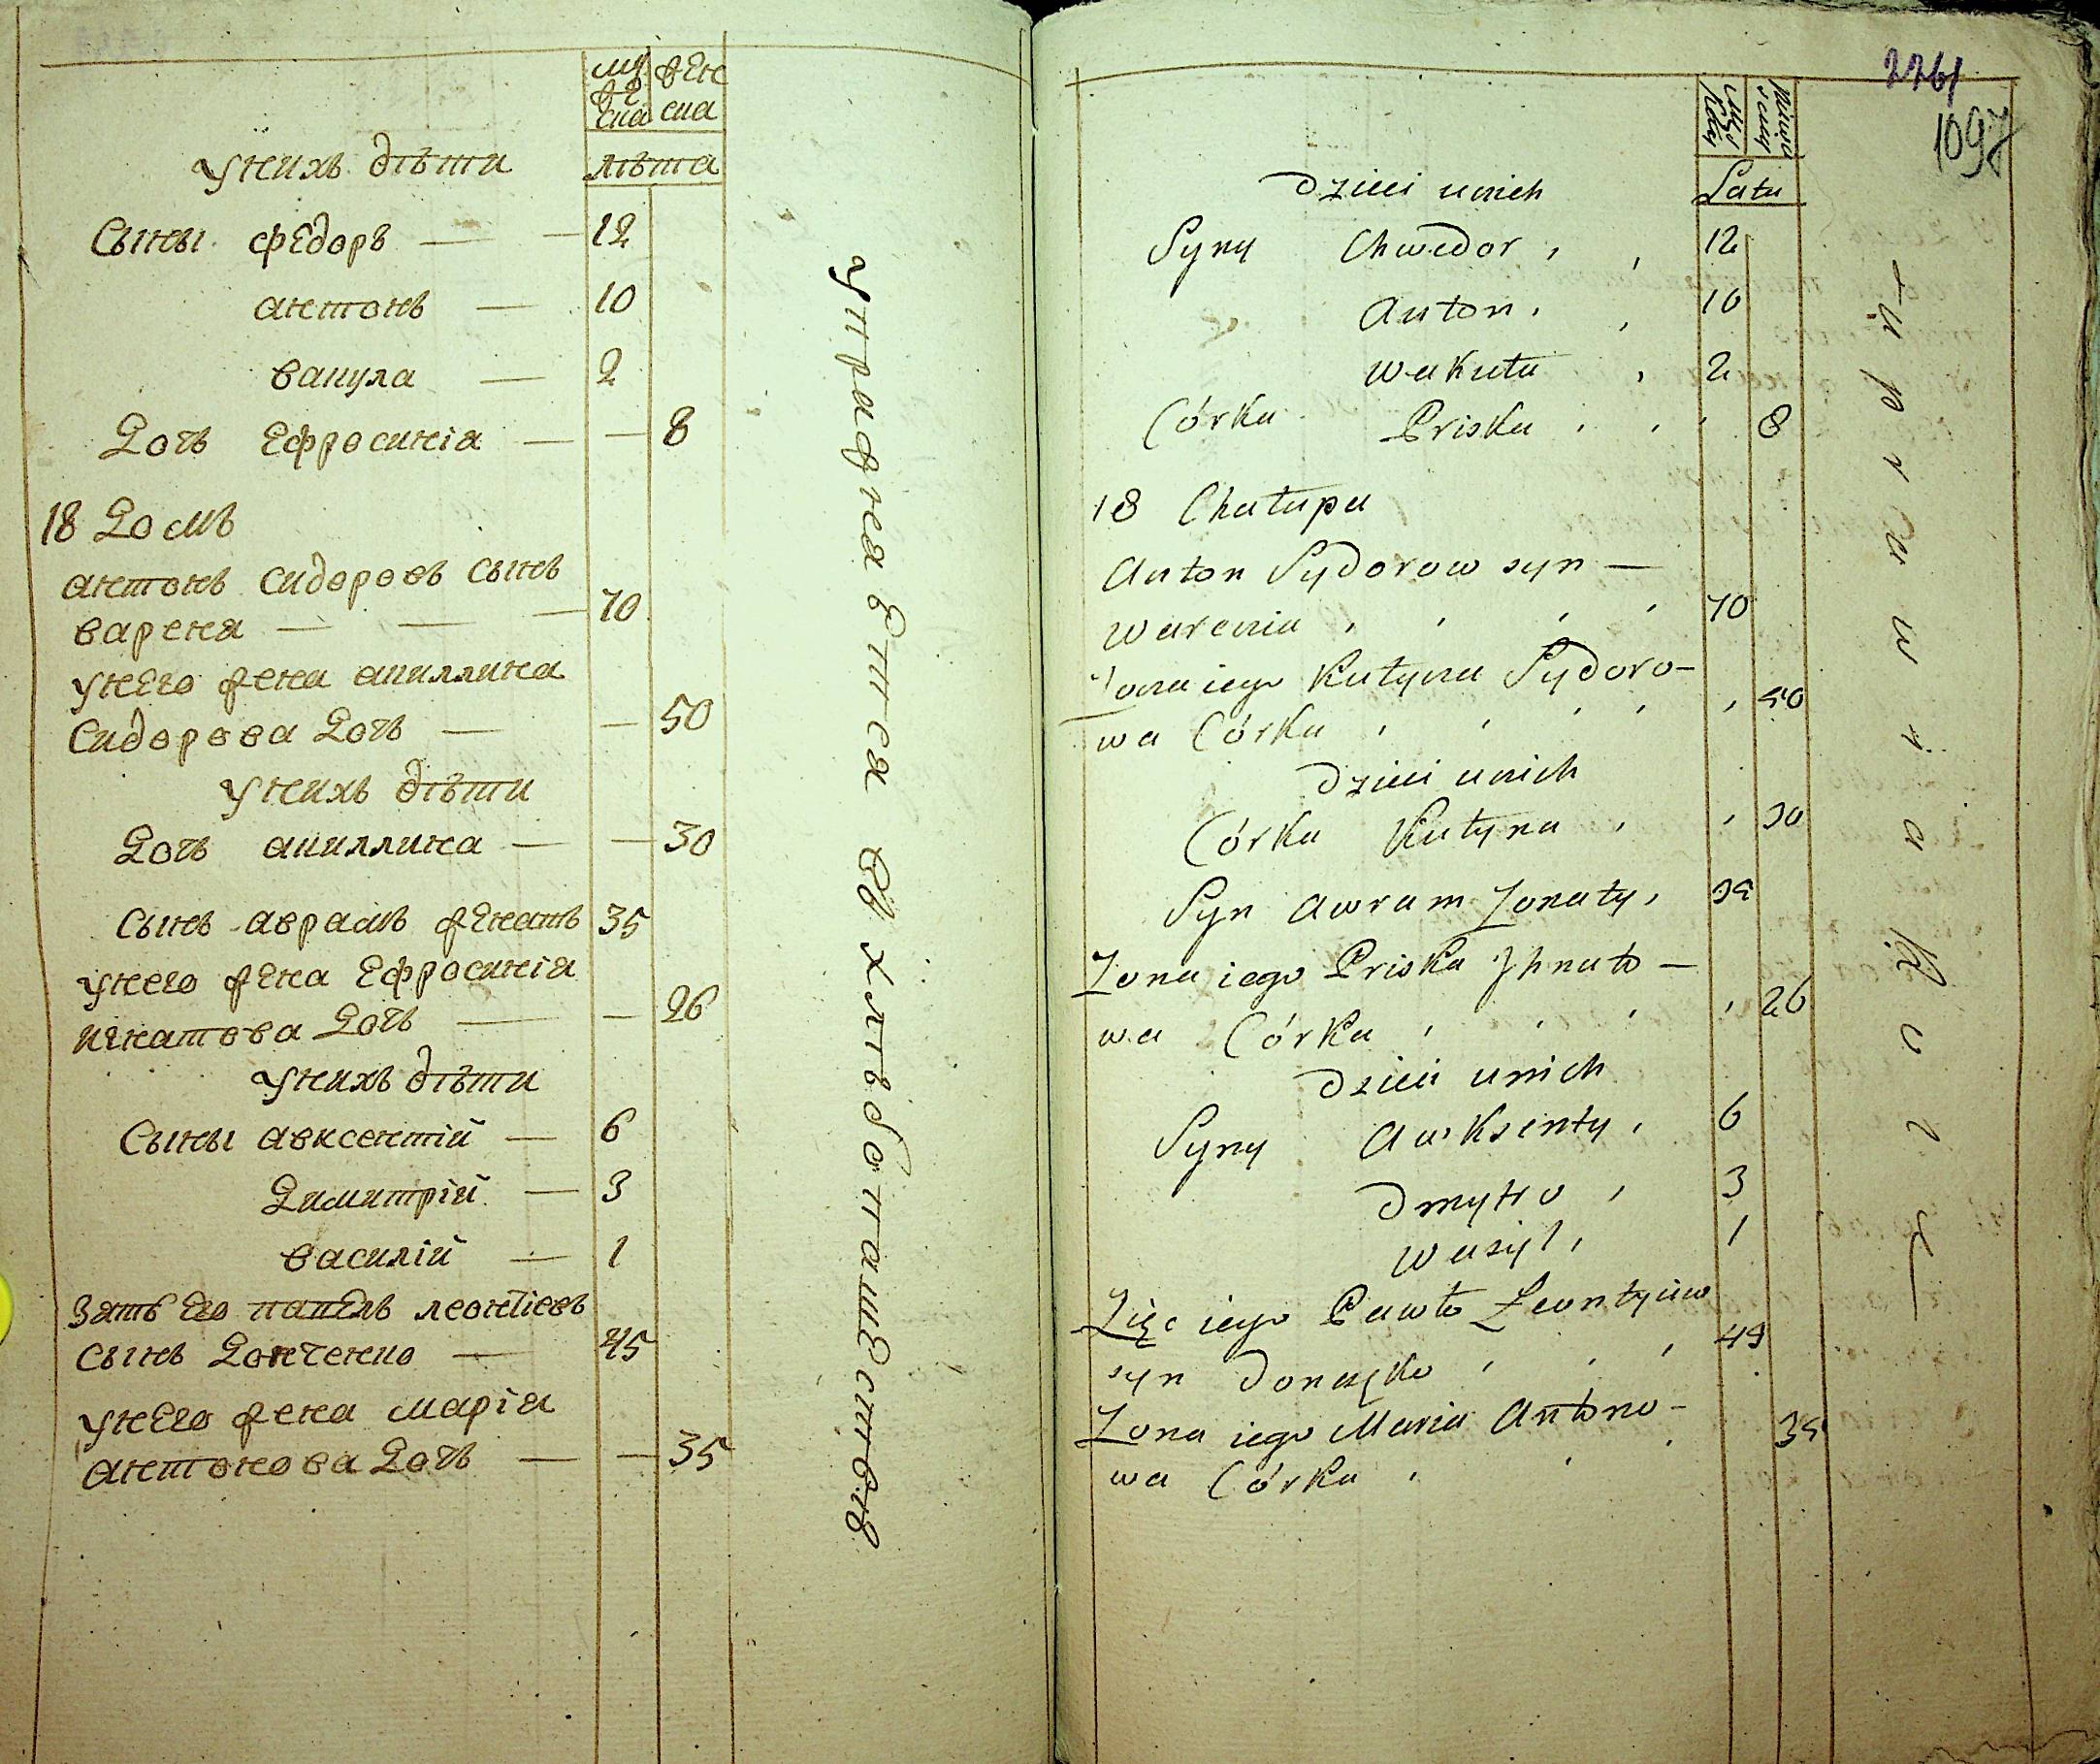 муже ска
женска
лѣта
У нихъ дѣти
Сыны Федоръ — — 12
Антонъ — 10
Вакула — 2
Дочь Ефросинія — — 8
18 Домъ
Антонъ Сидоровъ сынъ
Вареня — — — 70
У него жена Акиллина
Сидорова Дочь — — 50
У нихъ дѣти
Дочь Акиллина — — 30
Сынъ Аврамъ женатъ 35
У него жена Ефросинія
Игнатова Дочь — — 26
У нихъ дѣти
Сыны Авксентій — 6
Димитрій — 3
Василій — 1
Зять его Павелъ Леонтіевъ
сынъ Донченко — 45
У него жена Марія
Антонова Дочь — — 35
упражняется въ хлѣбопашествѣ
2261
1097
Latu
Dzieci u nich
Syny Chwedor 12
Anton 10
Wakuła 2
Córka Priska 8
18 Chałupa
Anton Sydorow syn —
Warenia 70
Żona iego Kułyna Sydoro-
wa Córka 50
Dzieci u nich
Córka Kułyna 30
Syn Awram Żonaty 35
Żona iego Priska Ihnato —
wa Córka 26
Dzieci u nich
Syny Awksenty 6
Dmytro 3
Wasyl 1
Zięć iego Pawło Leontyiew
syn Donczko 45
Żona iego Maria Antono-
wa Córka 35